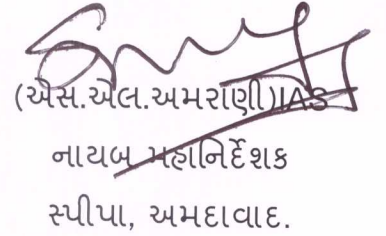 (એસ.એલ.અમરાણી)IAS
નાયબ મહાનિર્દેશક
સ્પીપા, અમદાવાદ.